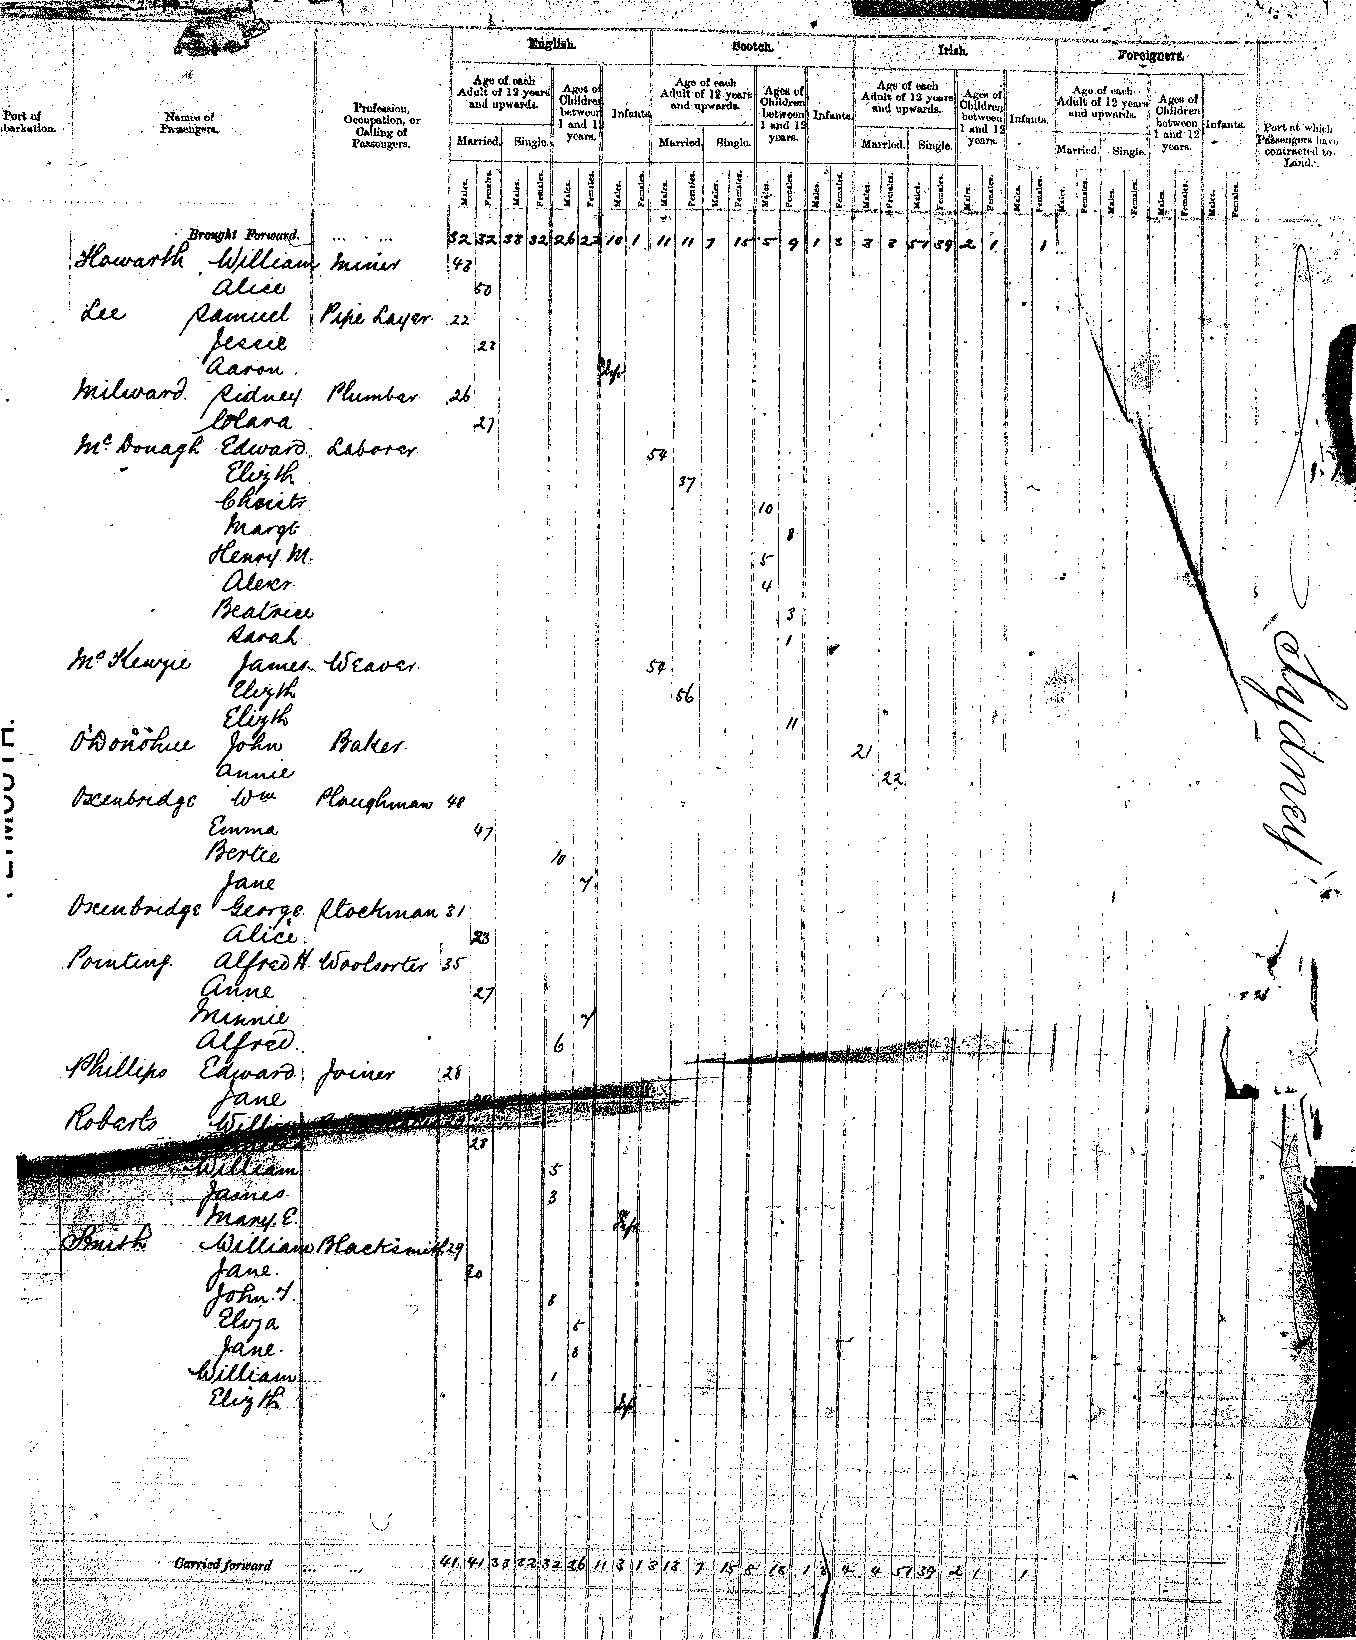 English. Scotch. Irish. Foreigners.
Port of Embarkation. Names of Passengers. Profession, Occupation, or Calling of Passengers. Age of each Adult of 12 years and upwards. Ages of Children between 1 and 12 years. Infants. Age of each Adult of 12 years and upwards. Ages of Children between 1 and 12 years. Infants. Age of each Adult of 12 years and upwards. Ages of Children between 1 and 12 years. Infants. Age of each Adult of 12 years and upwards. Ages of Children between 1 and 12 years. Infants. Port at which Passengers have contracted to Land.
Married. Single. Married. Single. Married. Single. Married. Single.
Males. Females. Males. Females. Males. Females. Males. Females. Males. Females. Males. Females. Males. Females. Males. Females. Males. Females. Males. Females. Males. Females. Males. Females. Males. Females. Males. Females. Males. Females. Males. Females.
Brought Forward. ... ... 32 32 38 32 26 22 10 1 11 11 7 15 5 9 1 2 3 3 51 39 2 1 1
Howarth William Miner 48
Alice 50
Lee Samuel Pipe Layer 22
Jessie 23
Aaron Inf
Milward Sidney Plumber 26
Clara 27
McDonagh Edward Laborer 54
Elizth 37
Christr 10
Margt 8
Henry M. 5
Alexr 4
Beatrice 3
Sarah 1
McKenzie James Weaver 54
Elizth 56
Elizth 11
O'Donohue John Baker 21
Annie 22
Oxenbridge Wm Ploughman 48
Emma 47
Bertie 10
Jane 7
Oxenbridge George Stockman 31
Alice 23
Pointing Alfred H. Woolsorter 35
Anne 27
Minnie 7
Alfred 6
Phillips Edward Joiner 28
Jane
Roberts
28
William 5
James 3
Mary E. Inf
Smith William Blacksmith 29
Jane 30
John T. 8
Eliza 5
Jane
William 1
Elizth Inf
Sydney
Carried forward ... ... 41 41 38 32 32 26 11 3 13 13 7 15 8 13 1 2 4 4 51 39 2 1 1